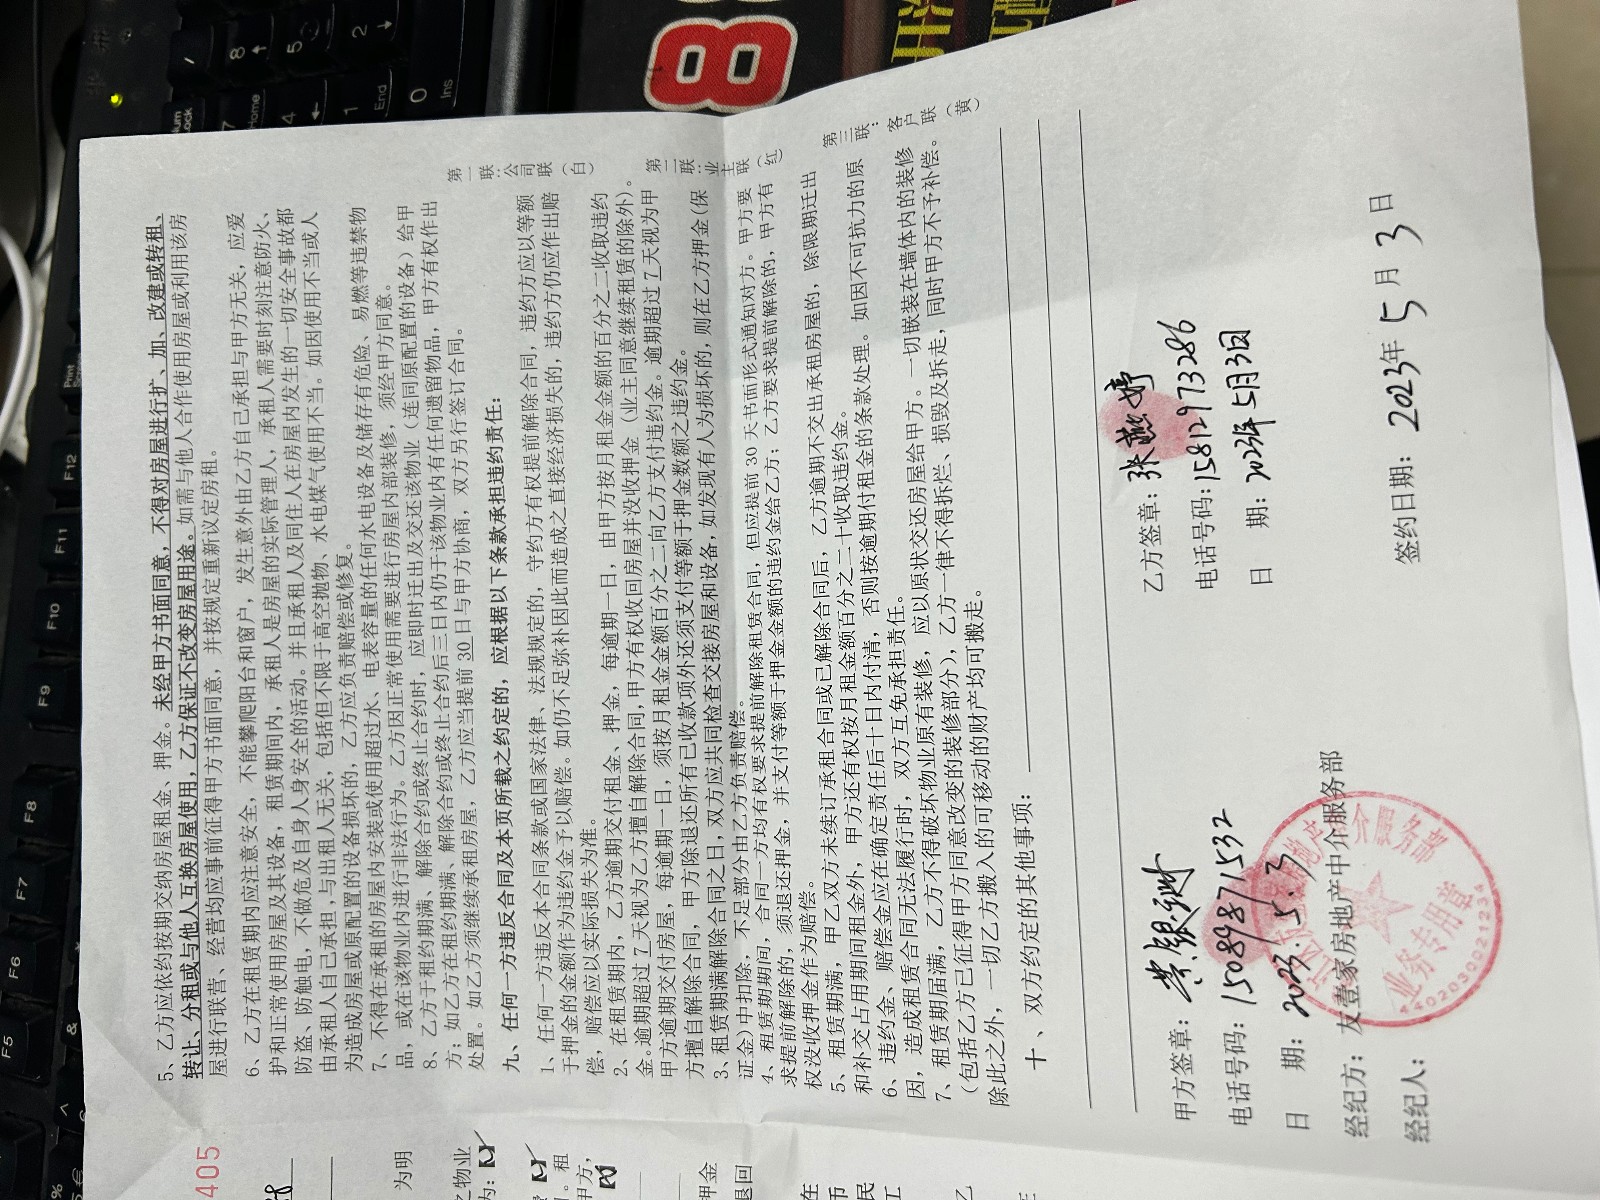 5、乙方应依约按期交纳房屋租金、押金。未经甲方书面同意,不得对房屋进行扩、加、改建或转租、
转让、分租或与他人互换房屋使用,乙方保证不改变房屋用途。如需与他人合作使用房屋或利用该房
屋进行联营、经营均应事前征得甲方书面同意,并按规定重新议定房租。
6、乙方在租赁期内应注意安全,不能攀爬阳台和窗户,发生意外由乙方自己承担与甲方无关,应爱
护和正常使用房屋及其设备,租赁期间内,承租人是房屋的实际管理人,承租人需要时刻注意防火、
防盗、防触电,不做危及自身人身安全的活动。并且承租人及同住人在房屋内发生的一切安全事故都
由承租人自己承担,与出租人无关,包括但不限于高空抛物、水电煤气使用不当。如因使用不当或人
为造成房屋或原配置的设备损坏的,乙方应负责赔偿或修复。
7、不得在承租的房屋内安装或使用超过水、电表容量的任何水电设备及储存有危险、易燃等违禁物
品,或在该物业内进行非法行为。乙方因正常使用需要进行房屋内部装修,须经甲方同意。
8、乙方于租约期满、解除合约或终止合约时,应即时迁出及交还该物业(连同原配置的设备)给甲
方;如乙方在租约期满、解除合约或终止合约后三日内仍于该物业内有任何遗留物品,甲方有权作出
处置。如乙方须继续承租房屋,乙方应当提前30日与甲方协商,双方另行签订合同。
九、任何一方违反合同及本页所载之约定的,应根据以下条款承担违约责任:
1、任何一方违反本合同条款或国家法律、法规规定的,守约方有权提前解除合同,违约方应以等额
于押金的金额作为违约金予以赔偿。如仍不足弥补因此而造成之直接经济损失的,违约方仍应作出赔
偿,赔偿应以实际损失为准。
2、在租赁期内,乙方逾期交付租金、押金,每逾期一日,由甲方按月租金金额的百分之二收取违约
金。逾期超过7天视为乙方擅自解除合同,甲方有权收回房屋并没收押金(业主同意继续租赁的除外)。
甲方逾期交付房屋,每逾期一日,须按月租金金额百分之二向乙方支付违约金。逾期超过7天视为甲
方擅自解除合同,甲方除退还所有已收款项外还须支付等额于押金数额之违约金。
3、租赁期满解除合同之日,双方应共同检查交接房屋和设备,如发现有人为损坏的,则在乙方押金(保
证金)中扣除,不足部分由乙方负责赔偿。
4、租赁期期间,合同一方均有权要求提前解除租赁合同,但应提前30天书面形式通知对方。甲方要
求提前解除的,须退还押金,并支付等额于押金金额的违约金给乙方;乙方要求提前解除的,甲方有
权没收押金作为赔偿。
5、租赁期满,甲乙双方未续订承租合同或已解除合同后,乙方逾期不交出承租房屋的,除限期迁出
和补交占用期间租金外,甲方还有权按月租金额百分之二十收取违约金。
6、违约金、赔偿金应在确定责任后十日内付清,否则按逾期付租金的条款处理。如因不可抗力的原
因,造成租赁合同无法履行时,双方互免承担责任。
7、租赁期届满,乙方不得破坏物业原有装修,应以原状交还房屋给甲方。一切嵌装在墙体内的装修
(包括乙方已征得甲方同意改变的装修部分),乙方一律不得拆烂、损毁及拆走,同时甲方不予补偿。
除此之外,一切乙方搬入的可移动的财产均可搬走。
十、双方约定的其他事项:
第一联:公司联(白)
第二联:业主联(红)
第三联:客户联(黄)
甲方签章:
电话号码:15089871532
日 期:2023.5.3
经纪方:友壹家房地产中介服务部
经纪人:
乙方签章:张燕婷
电话号码:15812973286
日 期:2023年5月3日
签约日期:2023年5月3日
业务专用章
405
为明
之物业
为:
。租
甲方,
押金
退回
F5
F6
F7
F8
F9
F10
F11
F12
8
7
Home
5
4
2
1
End
0
Ins
8